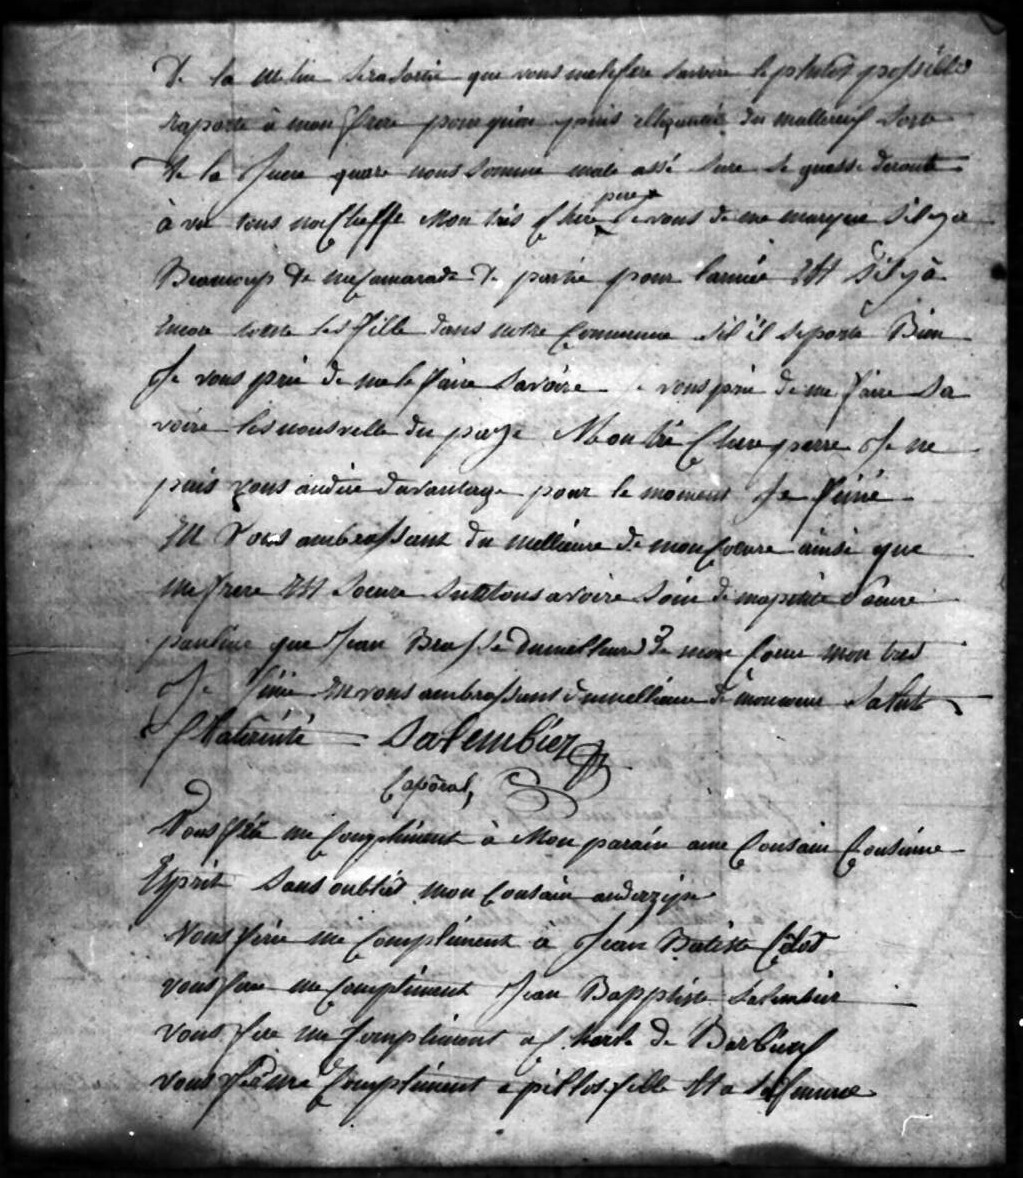 De la sera sortie que vous me le fere savoire le plutot possible
raporte a mon frere pour quion puis du mallereuf sorte
De la quare nous somme male assé sure
à vu tous nos Cheffe Mon très Chere pere Je vous de me marque s'il y a
Beaucoup de mes camarade de partie pour l'année S'il y à
encore toute les fille dans notre Commune s'il il se porte Bien
Je vous prie de me le faire savoire Je vous prie de me faire sa
voire les nouvelle du paÿe Mon tré Chere perre Je ne
puis vous andire davantage pour le moment Je finie
En Vous ambrassant du mellieure de mon Coeure ainsi que
me frere Et soeure surtous avoire soin de ma petite soeure
pauline que Jean Brasse du meilleure de mon Coeur mon tres
Je finie En vous ambrassant du mellieure de mon coeur Salut
fraternité Salembier
Caporal,
Vous feré me Compliment à Mon parain a me Cousain Cousinne
Esprit sans oublier mon Cousain
Vous ferie me Compliment a Jean Batiste
vous fere me Compliment Jean Bapptiste Salembier
vous fere me Compliment a Charle de
vous fere me Compliment a fille Et a sa femme